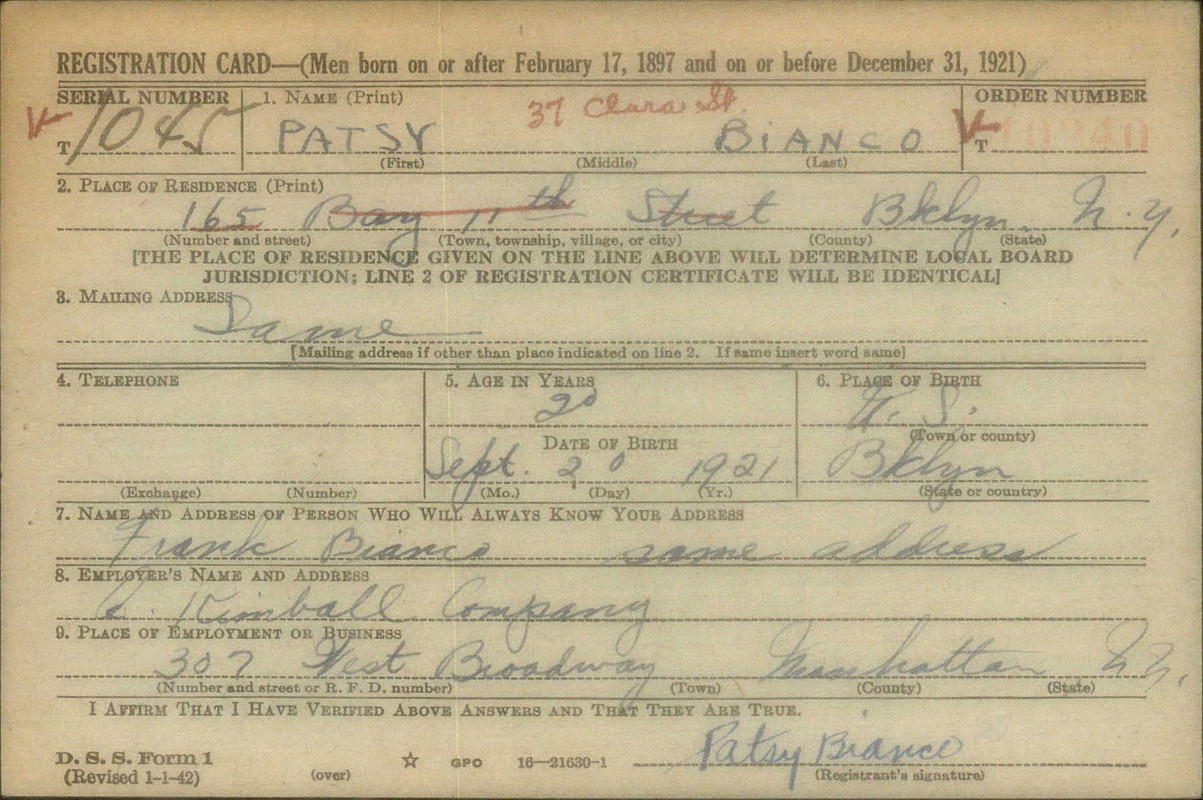 REGISTRATION CARD—(Men born on or after February 17, 1897 and on or before December 31, 1921)
SERIAL NUMBER 1. NAME (Print) 37 Clara St. ORDER NUMBER
T 1045 PATSY BIANCO T 10240
(First) (Middle) (Last)
2. PLACE OF RESIDENCE (Print)
165 Bay 11th Street Bklyn. N.Y.
(Number and street) (Town, township, village, or city) (County) (State)
[THE PLACE OF RESIDENCE GIVEN ON THE LINE ABOVE WILL DETERMINE LOCAL BOARD
JURISDICTION; LINE 2 OF REGISTRATION CERTIFICATE WILL BE IDENTICAL]
3. MAILING ADDRESS
Same
[Mailing address if other than place indicated on line 2. If same insert word same]
4. TELEPHONE 5. AGE IN YEARS 6. PLACE OF BIRTH
20 U.S.
DATE OF BIRTH (Town or county)
Sept. 20 1921 Bklyn
(Exchange) (Number) (Mo.) (Day) (Yr.) (State or country)
7. NAME AND ADDRESS OF PERSON WHO WILL ALWAYS KNOW YOUR ADDRESS
Frank Bianco same address
8. EMPLOYER'S NAME AND ADDRESS
Kimball Company
9. PLACE OF EMPLOYMENT OR BUSINESS
307 West Broadway Manhattan N.Y.
(Number and street or R. F. D. number) (Town) (County) (State)
I AFFIRM THAT I HAVE VERIFIED ABOVE ANSWERS AND THAT THEY ARE TRUE.
Patsy Bianco
D. S. S. Form 1 ☆ GPO 16—21630-1
(Revised 1-1-42) (over) (Registrant's signature)